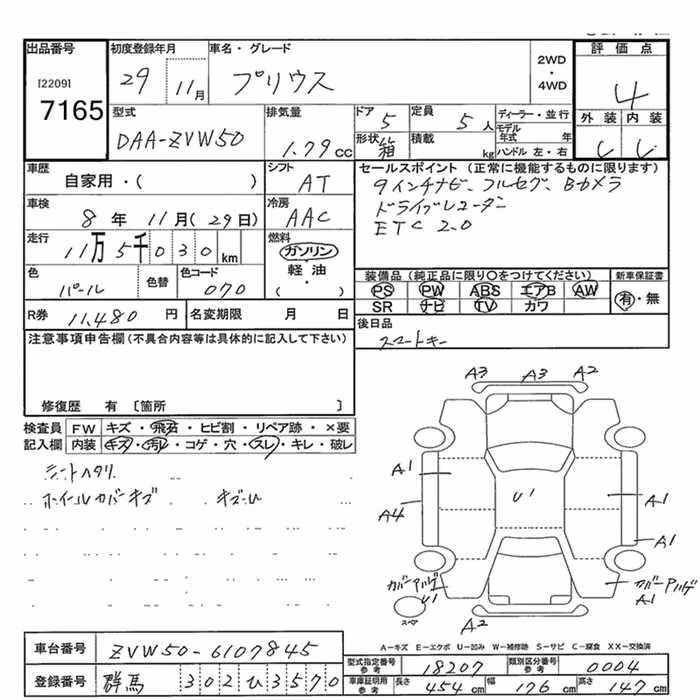 出品番号 初度登録年月 車名・グレード 評価点
[2209] 29 11月 プリウス 2WD・4WD 4
7165 型式 排気量 ドア 5 定員 5人 ディーラー・並行 外装 内装
DAA-ZVW50 1.79cc 形状 箱 積載 kg モデル年式 年 ハンドル 左・右 C C
車歴 シフト セールスポイント (正常に機能するものに限ります)
自家用・( ) AT 9インチナビ、フルセグ、Bカメラ
車検 冷房 ドライブレコーダー
8年 11月(29日) AAC ETC 2.0
走行 燃料
11万5千030km ガソリン
色 色替 色コード 軽・油 装備品 (純正品に限り○をつけてください) 新車保証書
パール 070 ( ・ ) PS PW ABS エアB AW 有・無
SR ナビ TV カワ
R券 11,480円 名変期限 月 日 後日品
注意事項申告欄(不具合内容等は具体的に記入して下さい) スマートキー
修復歴 有 〔箇所 〕
検査員 FW キズ・飛石・ヒビ割・リペア跡・×要
記入欄 内装 キズ・汚れ・コゲ・穴・スレ・キレ・破レ
シートヘタリ
ホイールカバーキズ キズ・U
A3 A3 A2
A1 U1 A1
A4 A1
カバーアリゲ U1 カバーアリゲ A1
スペア A2
A-キズ E-エクボ U-凹み W-補修跡 S-サビ C-腐食 XX-交換済
車台番号 ZVW50-6107845
型式指定番号 参考 18207 類別区分番号 参考 0004
登録番号 群馬 302ひ3570
車庫証明用 参考 長さ 454cm 幅 176cm 高さ 147cm